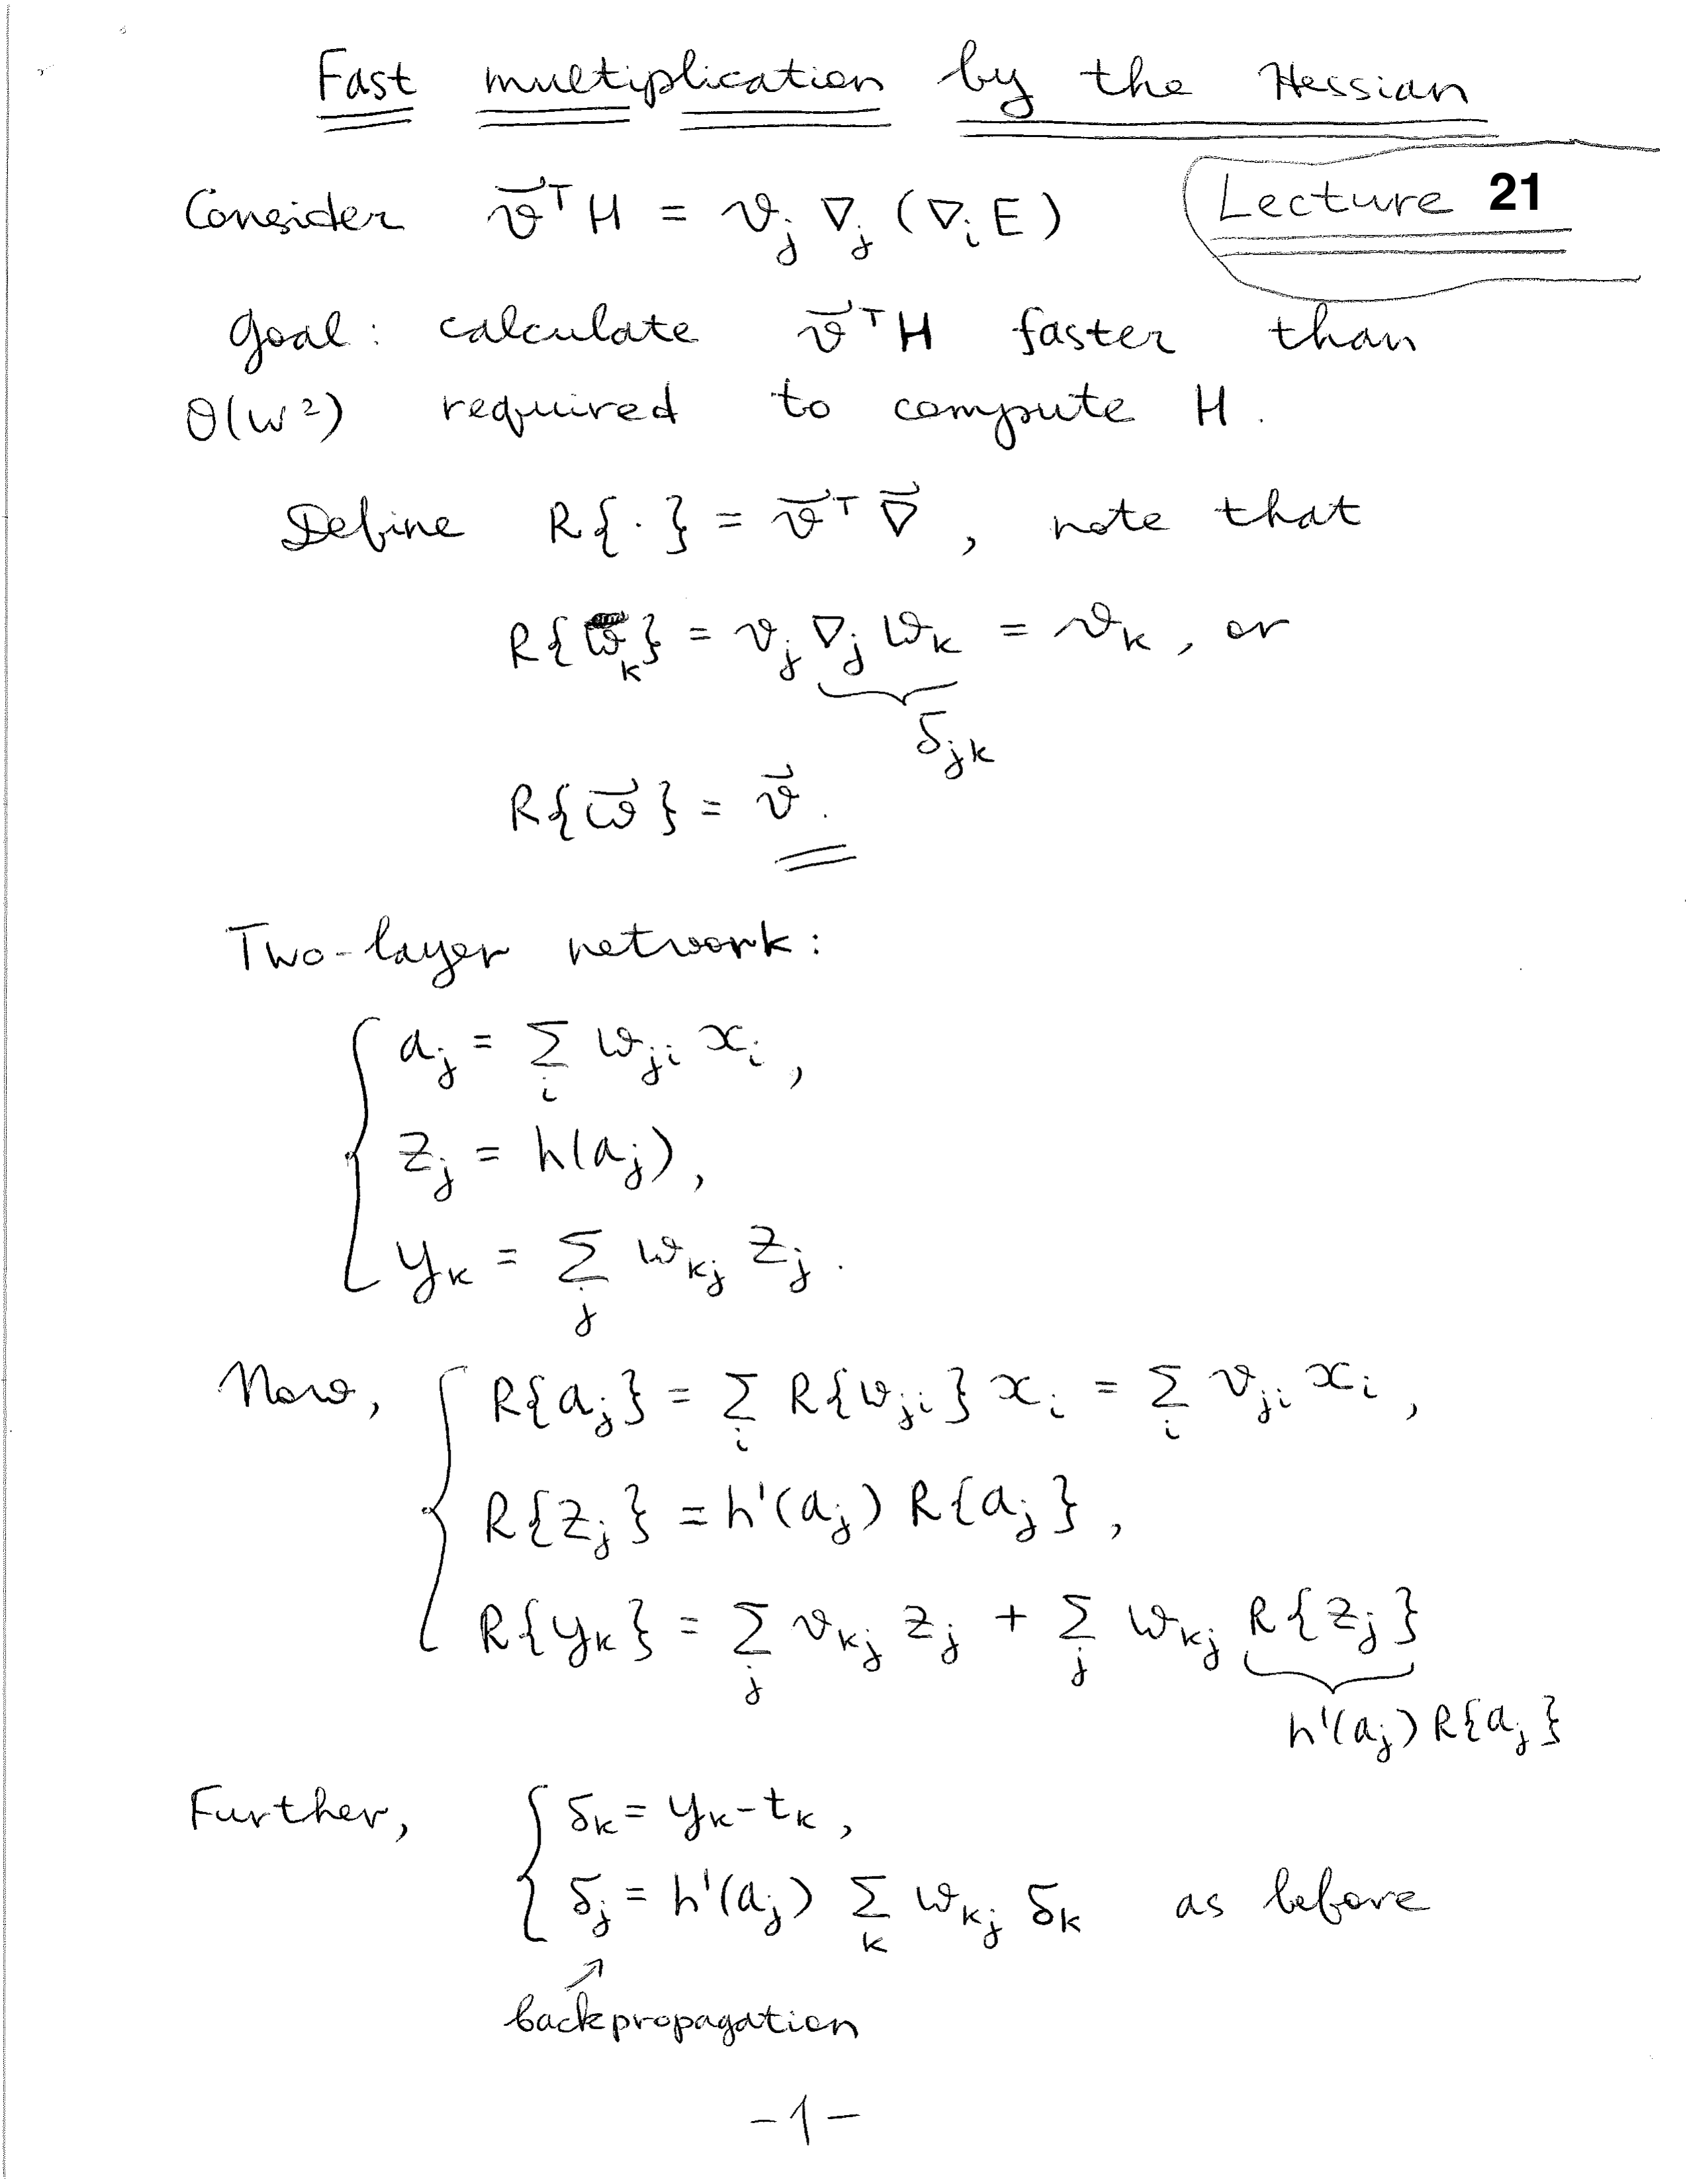 Fast multiplication by the Hessian
Lecture 21
Consider v⃗ᵀH = v_j ∇_j (∇_i E)
Goal: calculate v⃗ᵀH faster than
O(W²) required to compute H.
Define R{·} = v⃗ᵀ ∇⃗, note that
R{w_k} = v_j ∇_j w_k = v_k, or
δ_jk
R{w⃗} = v⃗.
Two-layer network:
a_j = Σ_i w_ji x_i,
z_j = h(a_j),
y_k = Σ_j w_kj z_j.
Now, R{a_j} = Σ_i R{w_ji} x_i = Σ_i v_ji x_i,
R{z_j} = h'(a_j) R{a_j},
R{y_k} = Σ_j v_kj z_j + Σ_j w_kj R{z_j}
h'(a_j) R{a_j}
Further, δ_k = y_k - t_k,
δ_j = h'(a_j) Σ_k w_kj δ_k as before
backpropagation
-1-